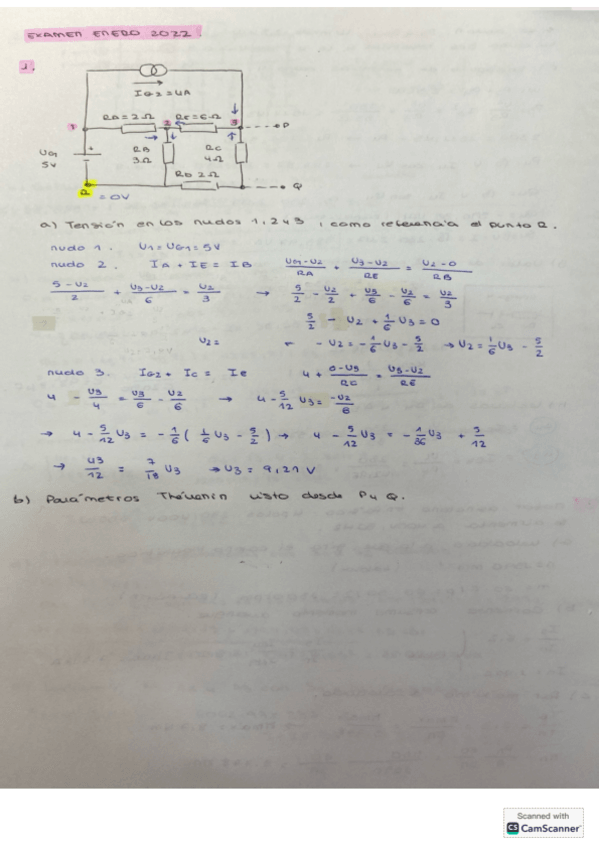 EXAMEN ENERO 2022.
1.
IG2 = 4A
RA = 2Ω 2 RE = 6Ω 3
1 P
UG1 5V + RB 3Ω RC 4Ω
RD 2Ω Q
R = 0V
a) Tensión en los nudos 1, 2 y 3, como referencia el punto R.
nudo 1. U1 = UG1 = 5V
nudo 2. IA + IE = IB (UG1 - U2)/RA + (U3 - U2)/RE = (U2 - 0)/RB
(5 - U2)/2 + (U3 - U2)/6 = U2/3 → 5/2 - U2/2 + U3/6 - U2/6 = U2/3
5/2 - U2 + 1/6 U3 = 0
U2 = ← - U2 = -1/6 U3 - 5/2 → U2 = 1/6 U3 - 5/2
nudo 3. IG2 + IC = IE 4 + (0 - U3)/RC = (U3 - U2)/RE
4 - U3/4 = U3/6 - U2/6 → 4 - 5/12 U3 = -U2/6
→ 4 - 5/12 U3 = -1/6 (1/6 U3 - 5/2) → 4 - 5/12 U3 = -1/36 U3 + 5/12
→ 43/12 = 7/18 U3 → U3 = 9,21 V
b) Parámetros Thévenin visto desde P y Q.
Scanned with
CS CamScanner